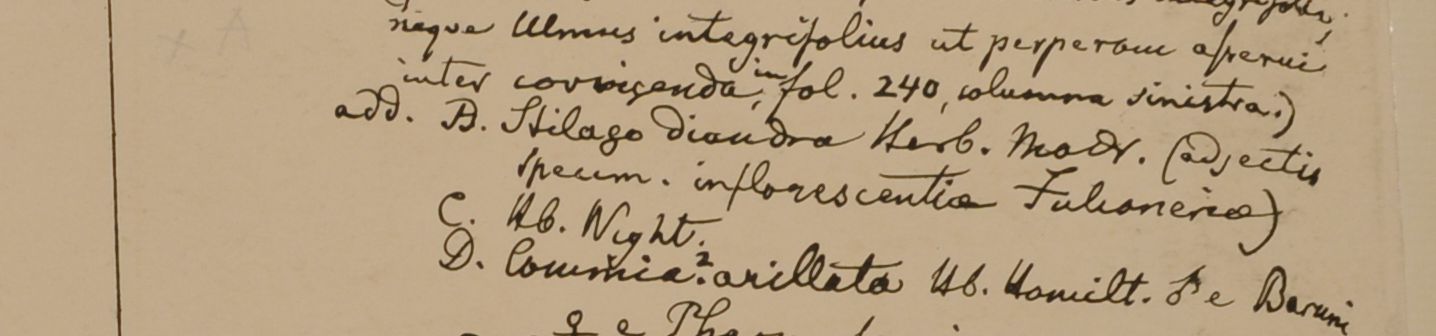 neque Ulmus integrifolius ut perperam asserui
inter corrigenda, in fol. 240, columna sinistra.)
add. B. Stilago diandra Herb. Madr. (adjectis
specim. inflorescentiæ
C. Hb. Wight.
D. Commia? arillata Hb. Hamilt. ♂ e
♀ e